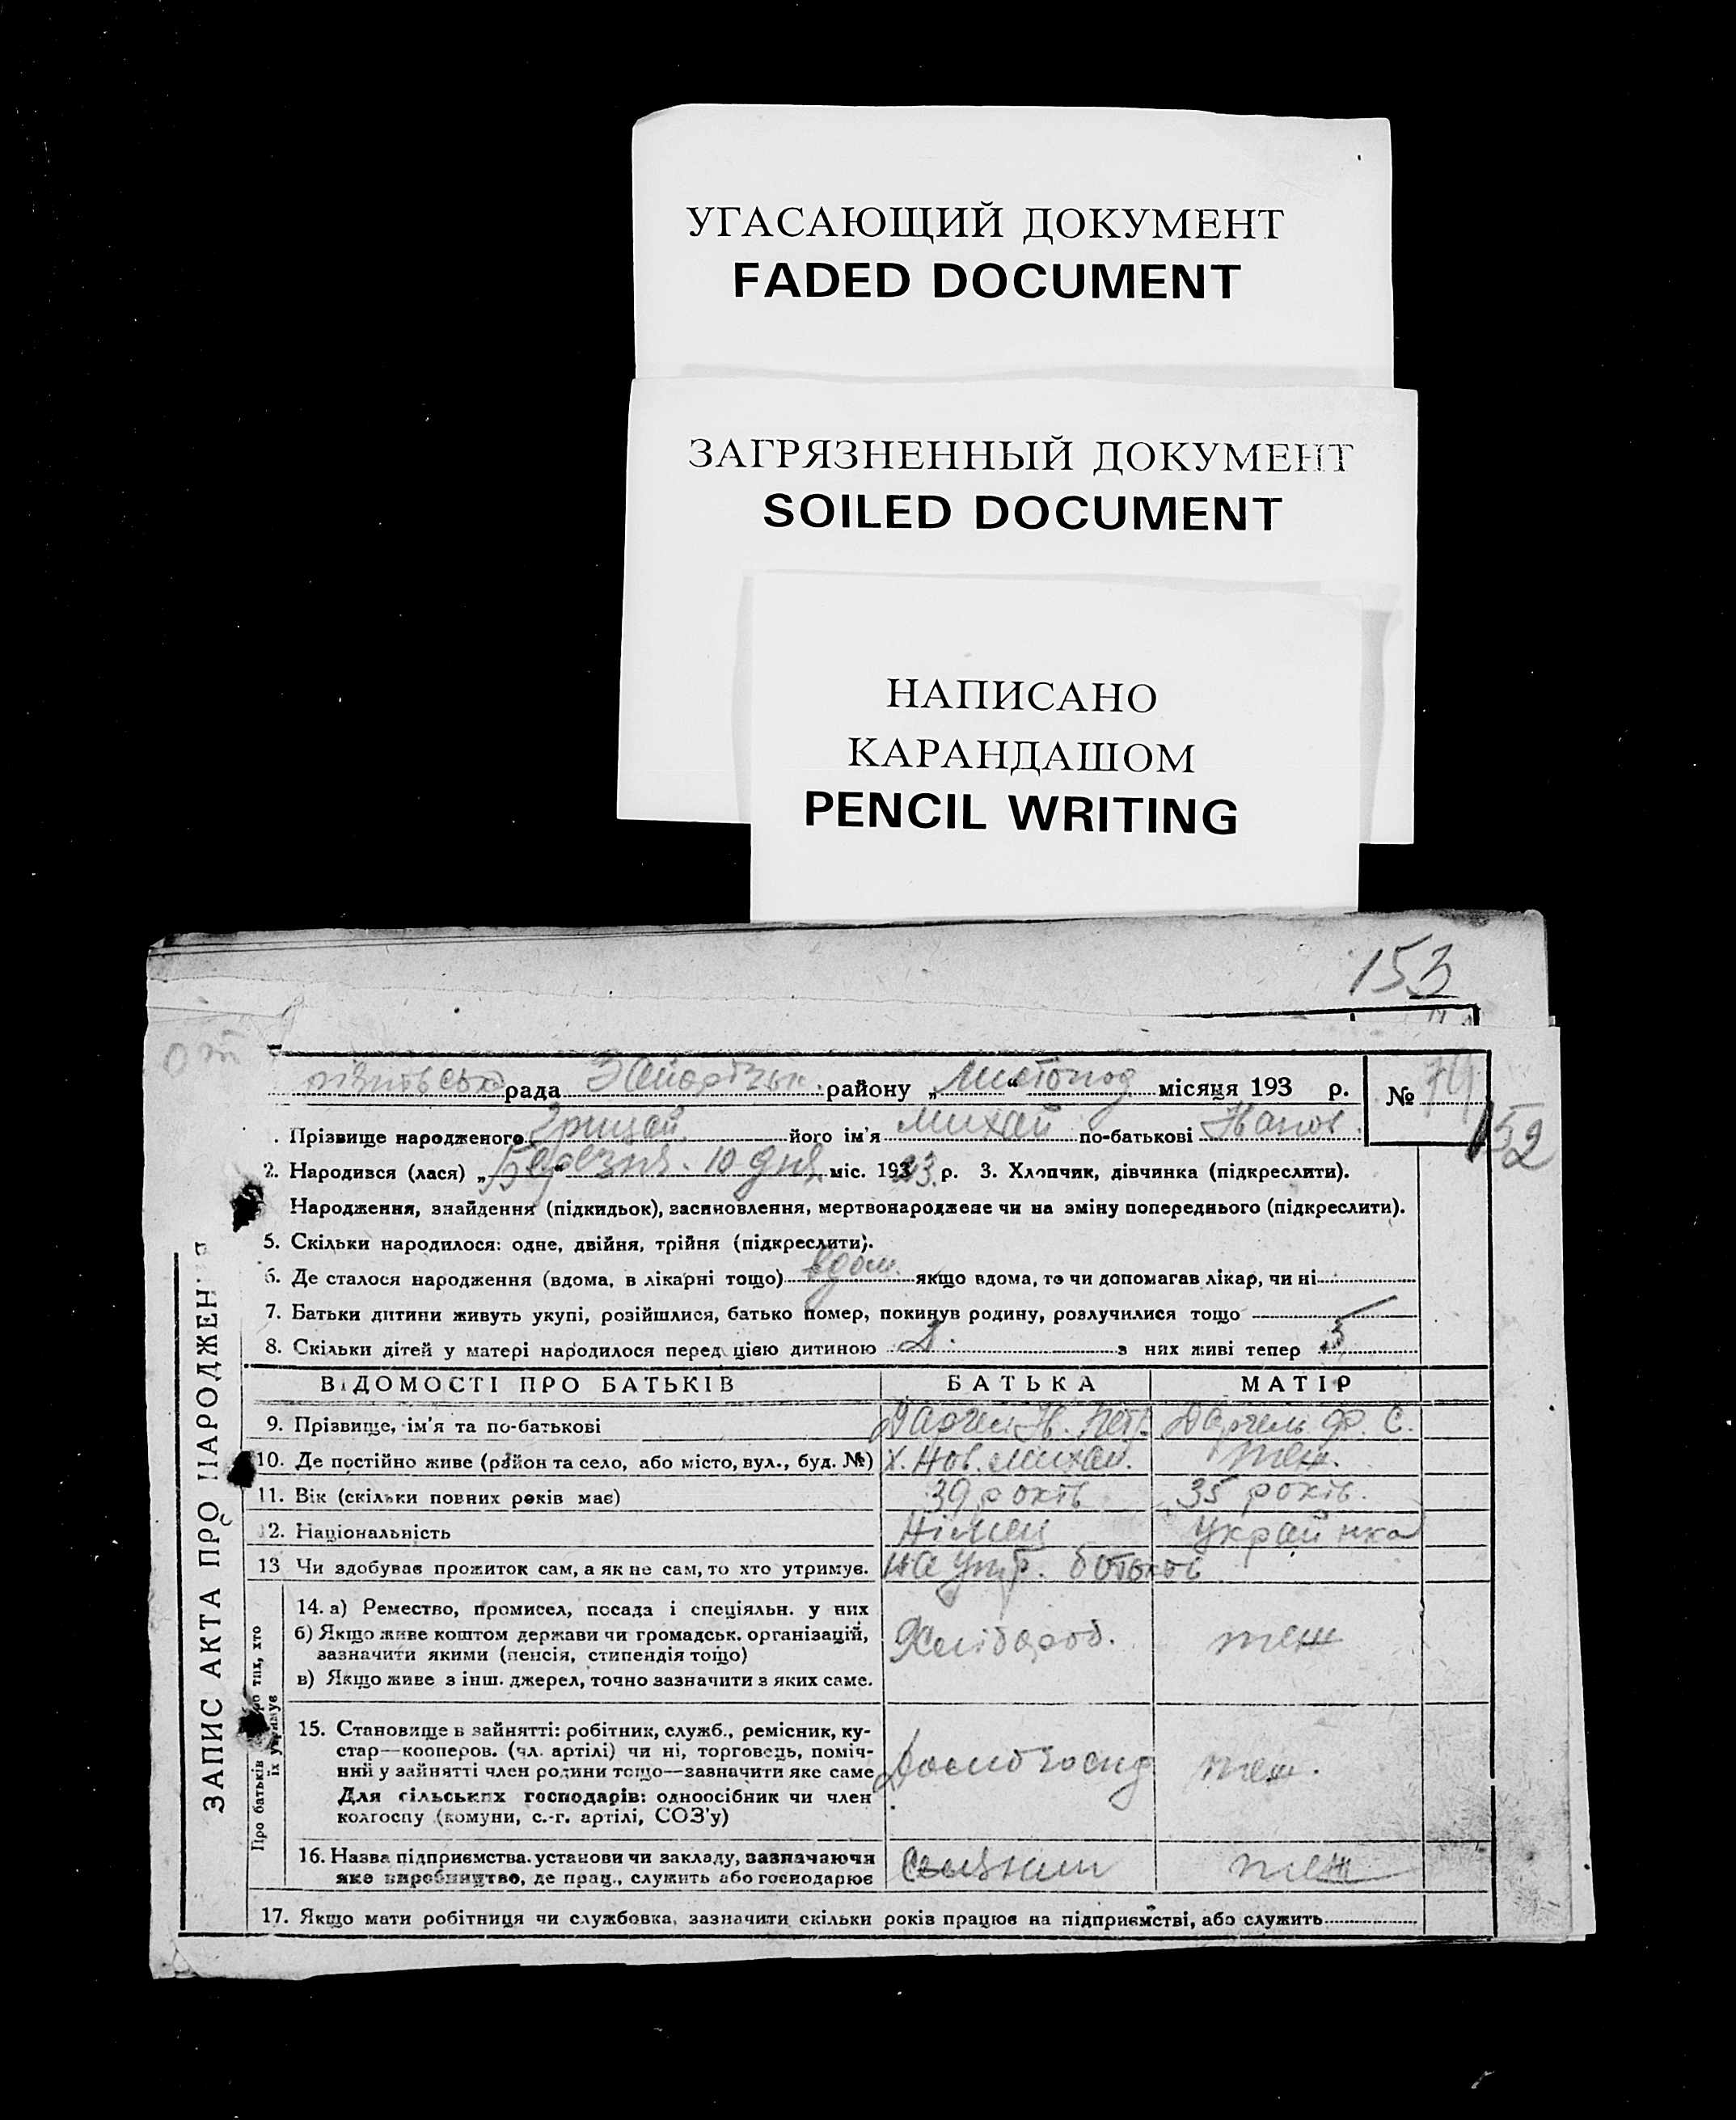 УГАСАЮЩИЙ ДОКУМЕНТ
FADED DOCUMENT
ЗАГРЯЗНЕННЫЙ ДОКУМЕНТ
SOILED DOCUMENT
НАПИСАНО
КАРАНДАШОМ
PENCIL WRITING
153
рада району „Листопад“ місяця 193 р. № 74
152
Прізвище народженого його ім'я Михай по-батькові Иванов.
2. Народився (лася) „Березня“ 10 дня міс. 1933 р. 3. Хлопчик, дівчинка (підкреслити).
Народження, знайдення (підкидьок), засиновлення, мертвонароджене чи на зміну попереднього (підкреслити).
5. Скільки народилося: одне, двійня, трійня (підкреслити).
6. Де сталося народження (вдома, в лікарні тощо) вдом. якщо вдома, то чи допомагав лікар, чи ні
7. Батьки дитини живуть укупі, розійшлися, батько помер, покинув родину, розлучилися тощо
8. Скільки дітей у матері народилося перед цією дитиною з них живі тепер 5
ЗАПИС АКТА ПРО НАРОДЖЕН
ВІДОМОСТІ ПРО БАТЬКІВ БАТЬКА МАТІР
9. Прізвище, ім'я та по-батькові
10. Де постійно живе (район та село, або місто, вул., буд. №) х. Нов. Михай. теж.
11. Вік (скільки повних років має) 39 років 35 років.
12. Національність Німец Украйінка
13 Чи здобуває прожиток сам, а як не сам, то хто утримує. на утр. батьків
Про батьків про тих, хто їх утримує
14. а) Ремество, промисел, посада і спеціяльн. у них
б) Якщо живе коштом держави чи громадськ. організацій,
зазначити якими (пенсія, стипендія тощо) Хлібороб. теж
в) Якщо живе з інш. джерел, точно зазначити з яких саме.
15. Становище в зайнятті: робітник, служб., ремісник, ку-
стар—кооперов. (чл. артілі) чи ні, торговець, поміч-
ний у зайнятті член родини тощо—зазначити яке саме теж.
Для сільських господарів: одноосібник чи член
колгоспу (комуни, с.-г. артілі, СОЗ'у)
16. Назва підприємства. установи чи закладу, зазначаючи
яке виробництво, де прац., служить або господарює теж
17. Якщо мати робітниця чи службовка, зазначити скільки років працює на підприємстві, або служить